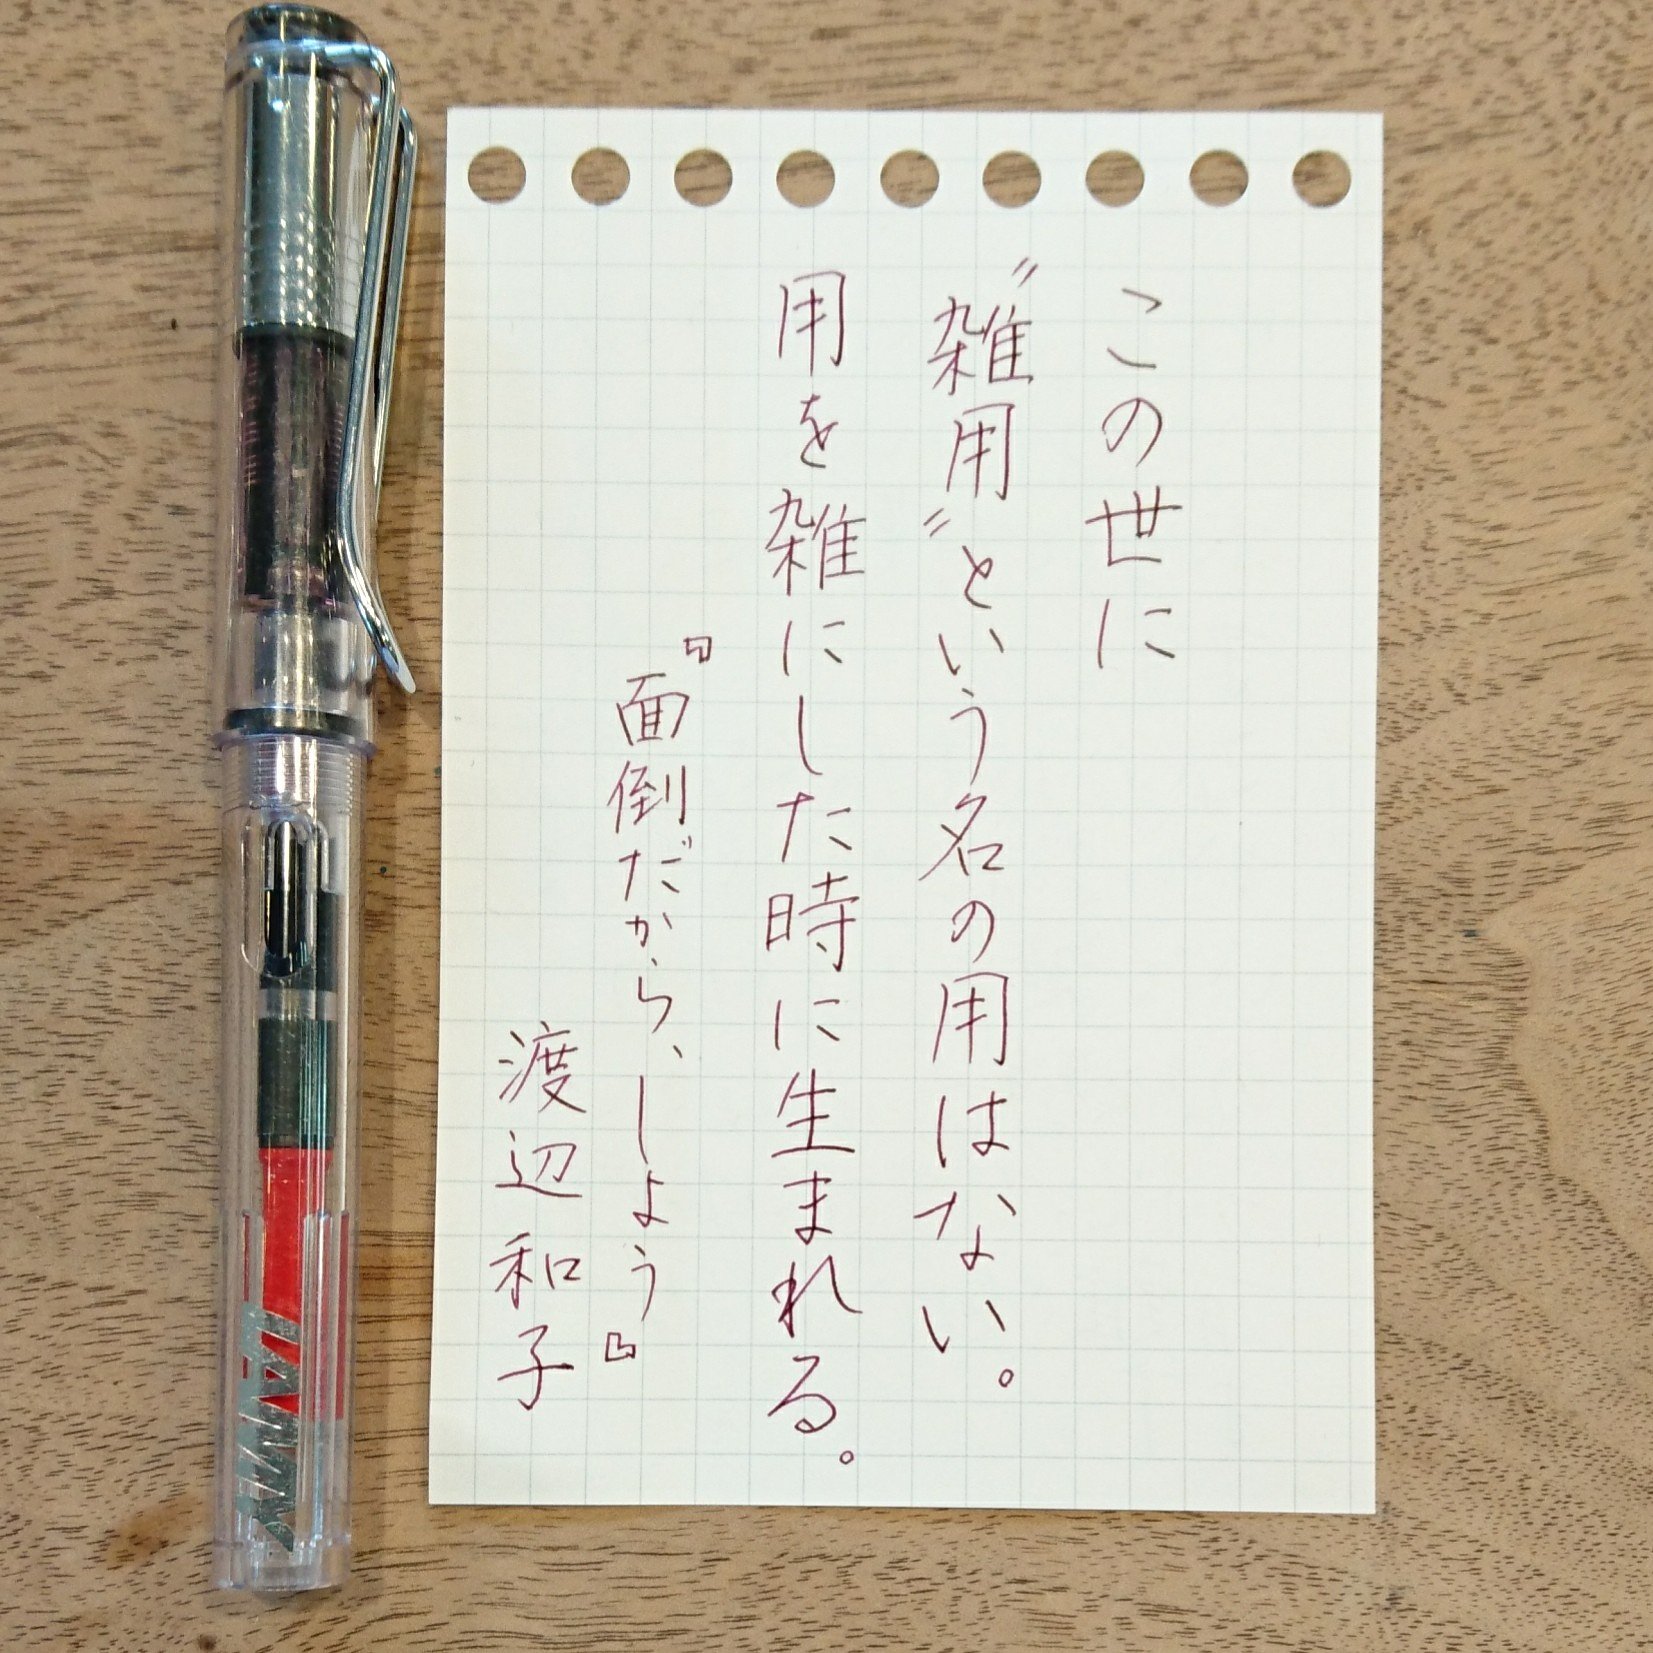 この世に
〝雑用〟という名の用はない。
用を雑にした時に生まれる。
『面倒だから、しよう』
渡辺和子
LAMY